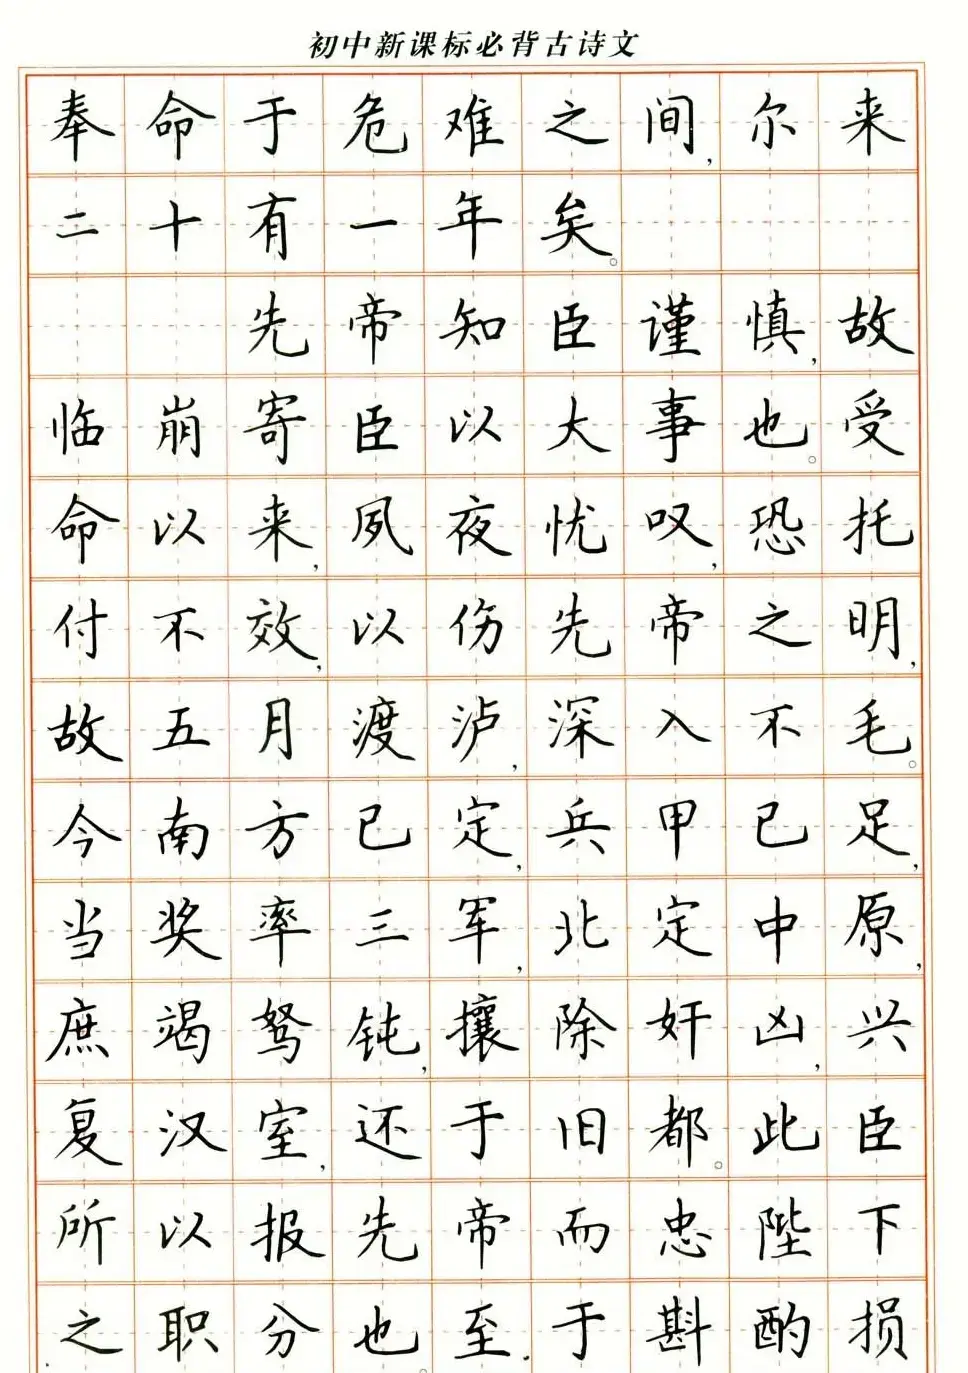 初中新课标必背古诗文
奉命于危难之间,尔来
二十有一年矣。
先帝知臣谨慎,故
临崩寄臣以大事也。受
命以来,夙夜忧叹,恐托
付不效,以伤先帝之明,
故五月渡泸,深入不毛。
今南方已定,兵甲已足,
当奖率三军,北定中原,
庶竭驽钝,攘除奸凶,兴
复汉室,还于旧都。此臣
所以报先帝而忠陛下
之职分也。至于斟酌损